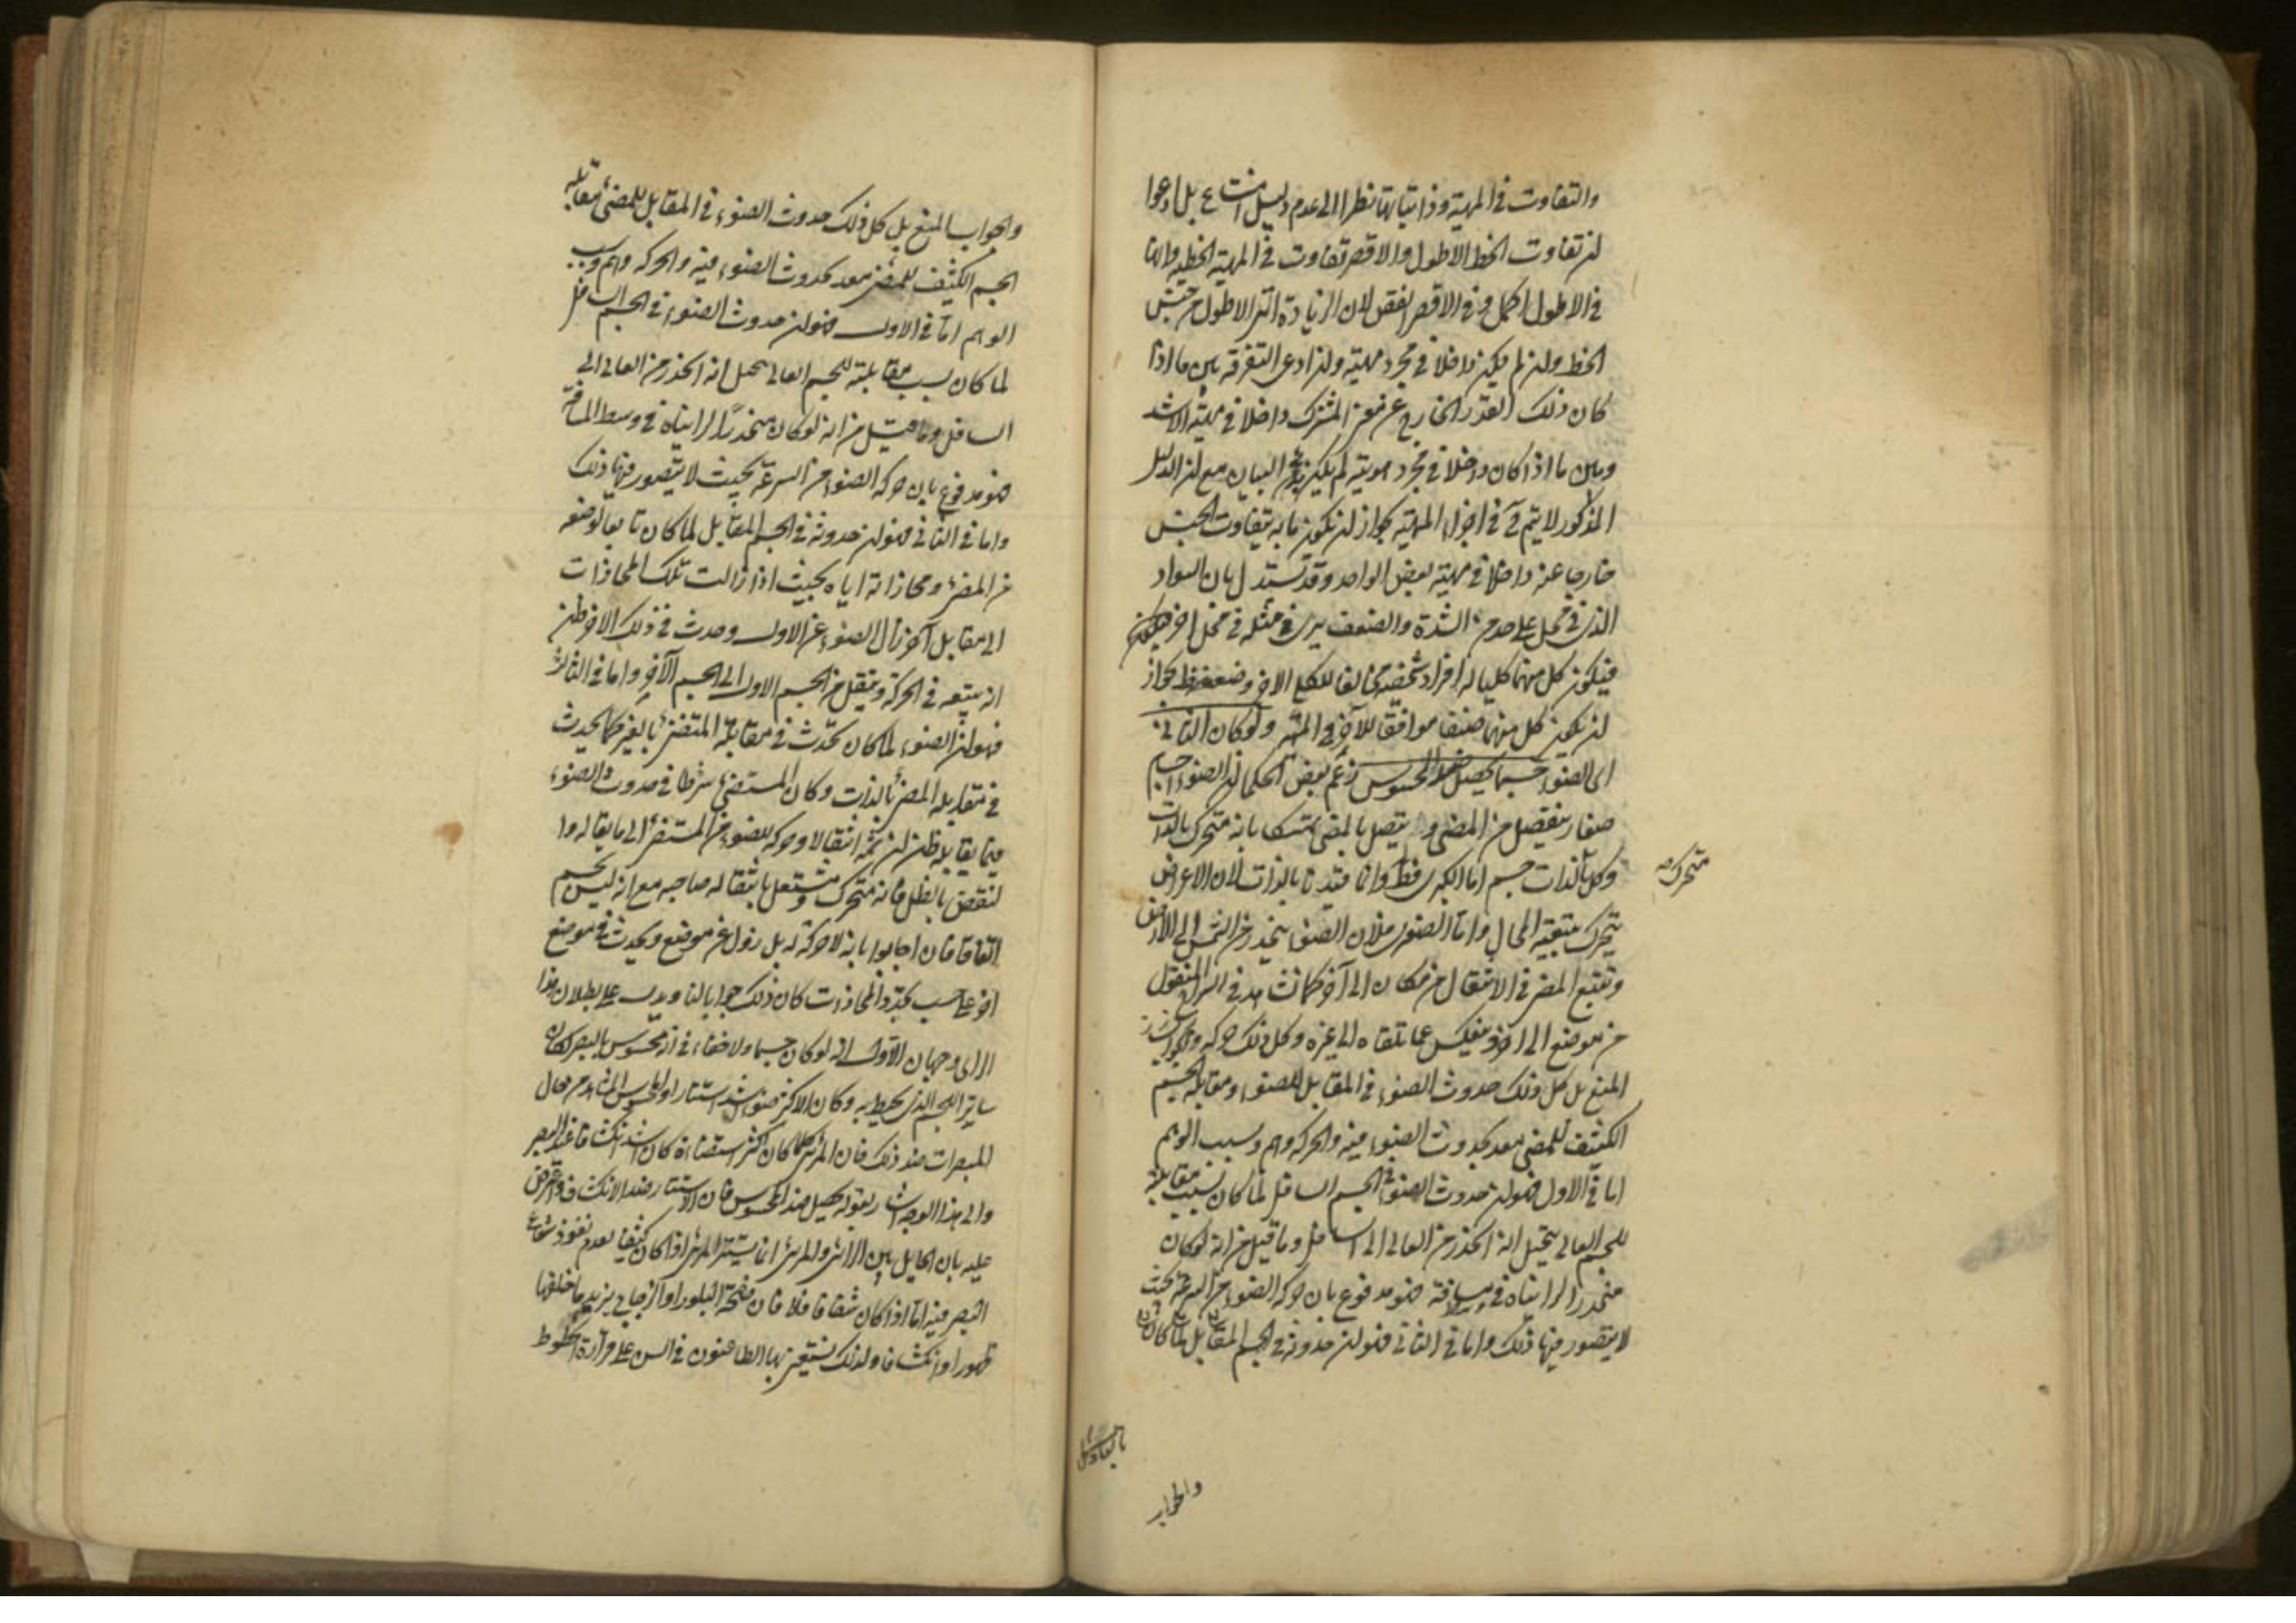 والتفاوت في المهية وذاتياتها نظرا الى عدم دليل امتناع بل ادعوا
ان تفاوت الخط الاطول والاقصر تفاوت في المهية الخطية وانها
في الاطول اكمل وفي الاقصر انقص لان الزيادة التي الاطول من جنس
الخط وان لم يكن داخلا في مجرد مهيته وان ادعى التفرقة بين ما اذا
كان ذلك القدر الخارج عن المشترك داخلا في مهية الاشد
وبين ما اذا كان داخلا في مجرد هويته لم يكن البيان مع ان الدليل
المذكور لا يتم في اجزاء المهية لجواز ان يكون ما به يتفاوت الجنس
خارجا عنه داخلا في مهية بعض الواحد وقد يستدل بان السواد
الذي في محل على حد من الشدة والضعف يرى مثله في محل اخر
فيكون كل منهما كليا له افراد شخصية مخالفا للكلي الاخر وضعفه ظ لجواز
ان يكون كل منهما صنفا موافقا للآخر في المهية ولو كان الثاني
اي الضوء جسما يحصل ضد المحسوس زعم بعض الحكما ان الضوء اجسام
صغار ينفصل من المضي ويتصل بالمضي تمسكا بانه متحرك بالذات
متحرك
وكل بالذات جسم اما الكبرى فظ وانما قيدنا بالذات لان الاعراض
يتحرك بتبعية المحال واما الصغرى فلان الضوء ينحدر من الشمس الى الارض
ويتبع المضي في الانتقال من مكان الى آخر كما نشاهد في السراج المنقول
من موضع الى آخر وينعكس عما يلقاه الى غيره وكل ذلك حركة والجواب
المنع بل كل ذلك حدوث الضوء في المقابل للضوء ومقابلة الجسم
الكثيف للمضي معد لحدوث الضوء فيه والحركة وهم وسبب الوهم
اما في الاول فهو ان حدوث الضوء في الجسم السافل لما كان بسبب مقابلته
للجسم العالي تخيل انه انحدر من العالي الى السافل وما قيل من انه لو كان
منحدرا لرايناه في وسط مسافة فهو مدفوع بان حركة الضوء من السرعة بحيث
لا يتصور فيها ذلك واما في الثاني فهو ان حدوثه في الجسم المقابل لما كان
والجواب
والجواب المنع بل كل ذلك حدوث الضوء في المقابل للمضئ ومقابلة
الجسم الكثيف للمضئ معد لحدوث الضوء فيه والحركة وهم وسبب
الوهم اما في الاول فهو ان حدوث الضوء في الجسم السافل
لما كان بسبب مقابلته للجسم العالي تخيل انه انحدر من العالي الى
السافل وما قيل من انه لو كان منحدرا لرايناه في وسط المسافة
فهو مدفوع بان حركة الضوء من السرعة بحيث لا يتصور فيها ذلك
واما في الثاني فهو ان حدوثه في الجسم المقابل لما كان تابعا لوضعه
من المضئ ومحاذاته اياه بحيث اذا زالت تلك المحاذات
الى مقابل آخر زال الضوء عن الاول وحدث في ذلك الاخر ظن
انه يتبعه في الحركة وينتقل من الجسم الاول الى الجسم الآخر واما في الثالث
فهو ان الضوء لما كان يحدث في مقابلة المستضئ بالغير كما يحدث
في مقابلة المضئ بالذات وكان المستضئ شرطا في حدوث الضوء
فيما يقابله ظن ان ثمة انتقالا وحركة للضوء من المستضئ الى ما يقابله وا
لنقض بالظل فانه متحرك ومنتقل بانتقال صاحبه مع انه ليس بجسم
اتفاقا فان اجابوا بانه لا حركة له بل يزول عن موضع ويحدث في موضع
اخر على حسب تجدد المحاذات كان ذلك جوابا لنا ويدل على بطلان هذا
الراي وجهان الاول انه لو كان جسما ولا خفاء في انه محسوس بالبصر لكان
ساترا للجسم الذي يحيط به وكان الاكثر ضوءا اشد استتارا والمحسوس المشاهد من حال
المبصرات ضد ذلك فان المرئي كلما كان اكثر استضاءة كان اشد انكشافا عند البصر
والى هذا الوجه اشار بقوله يحصل ضد المحسوس فان الاستتار ضد الانكشاف واعترض
عليه بان الحايل بين الرائي والمرئي انما يستتر المرئي اذا كان كثيفا لعدم نفوذ شعاع
البصر فيه اما اذا كان شفافا فلا فان صفحة البلور او الزجاج يزيد ما خلفها
ظهورا وانكشافا ولذلك يستعين بها الطاعنون في السن على قراءة الخطوط